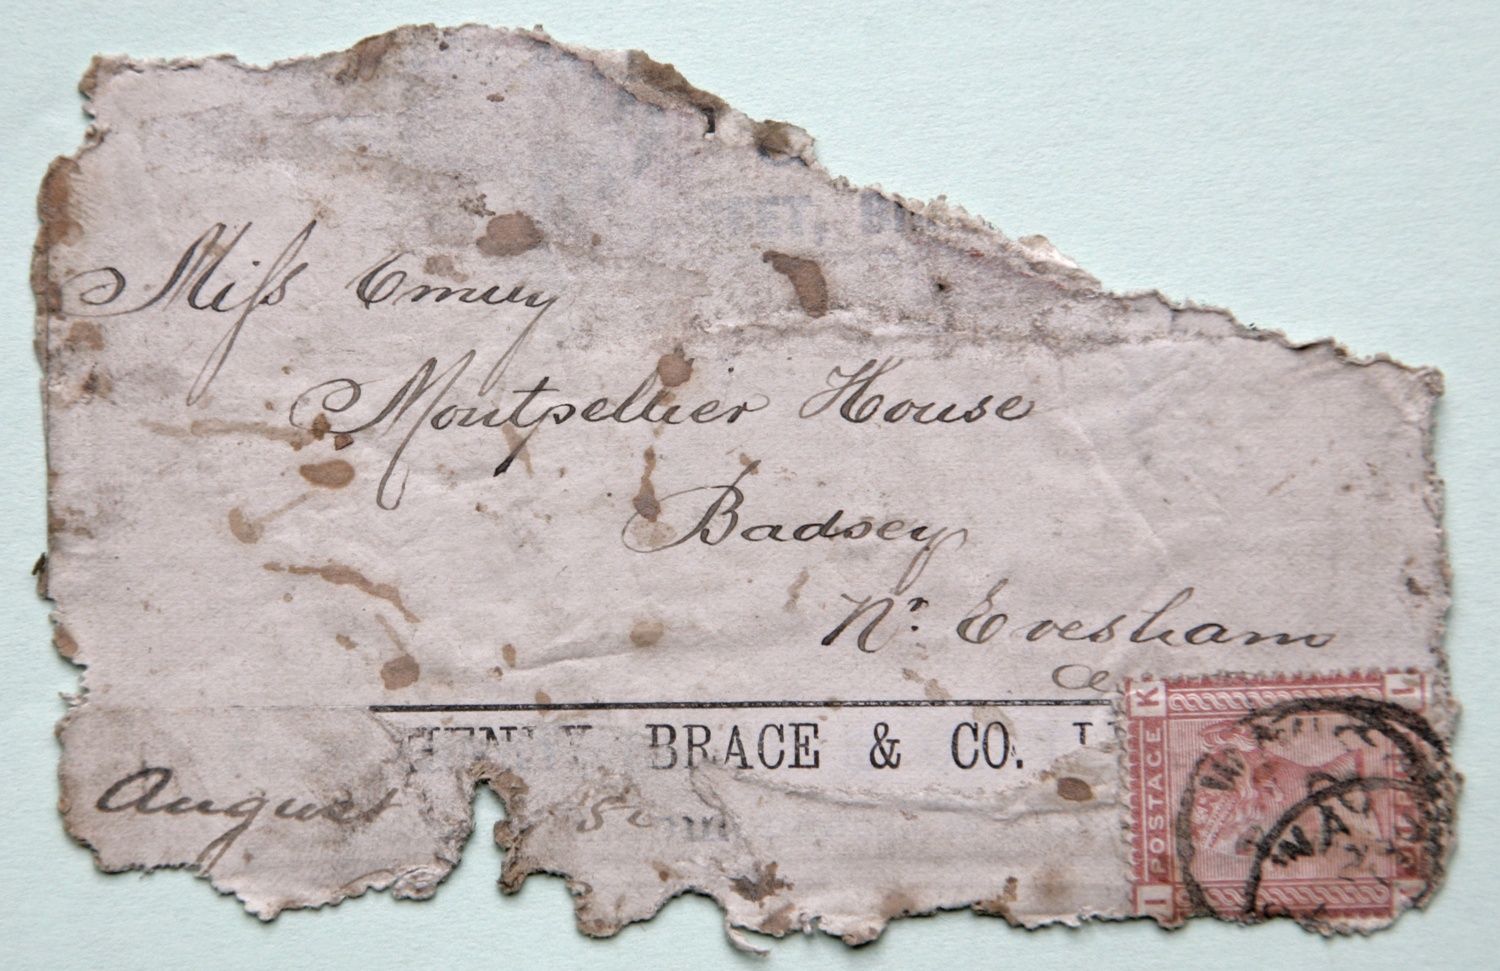 Miſs Emuy
Montpellier House
Badsey
Nr. Evesham
BRACE & CO.
August
K L
POSTAGE
I
WA